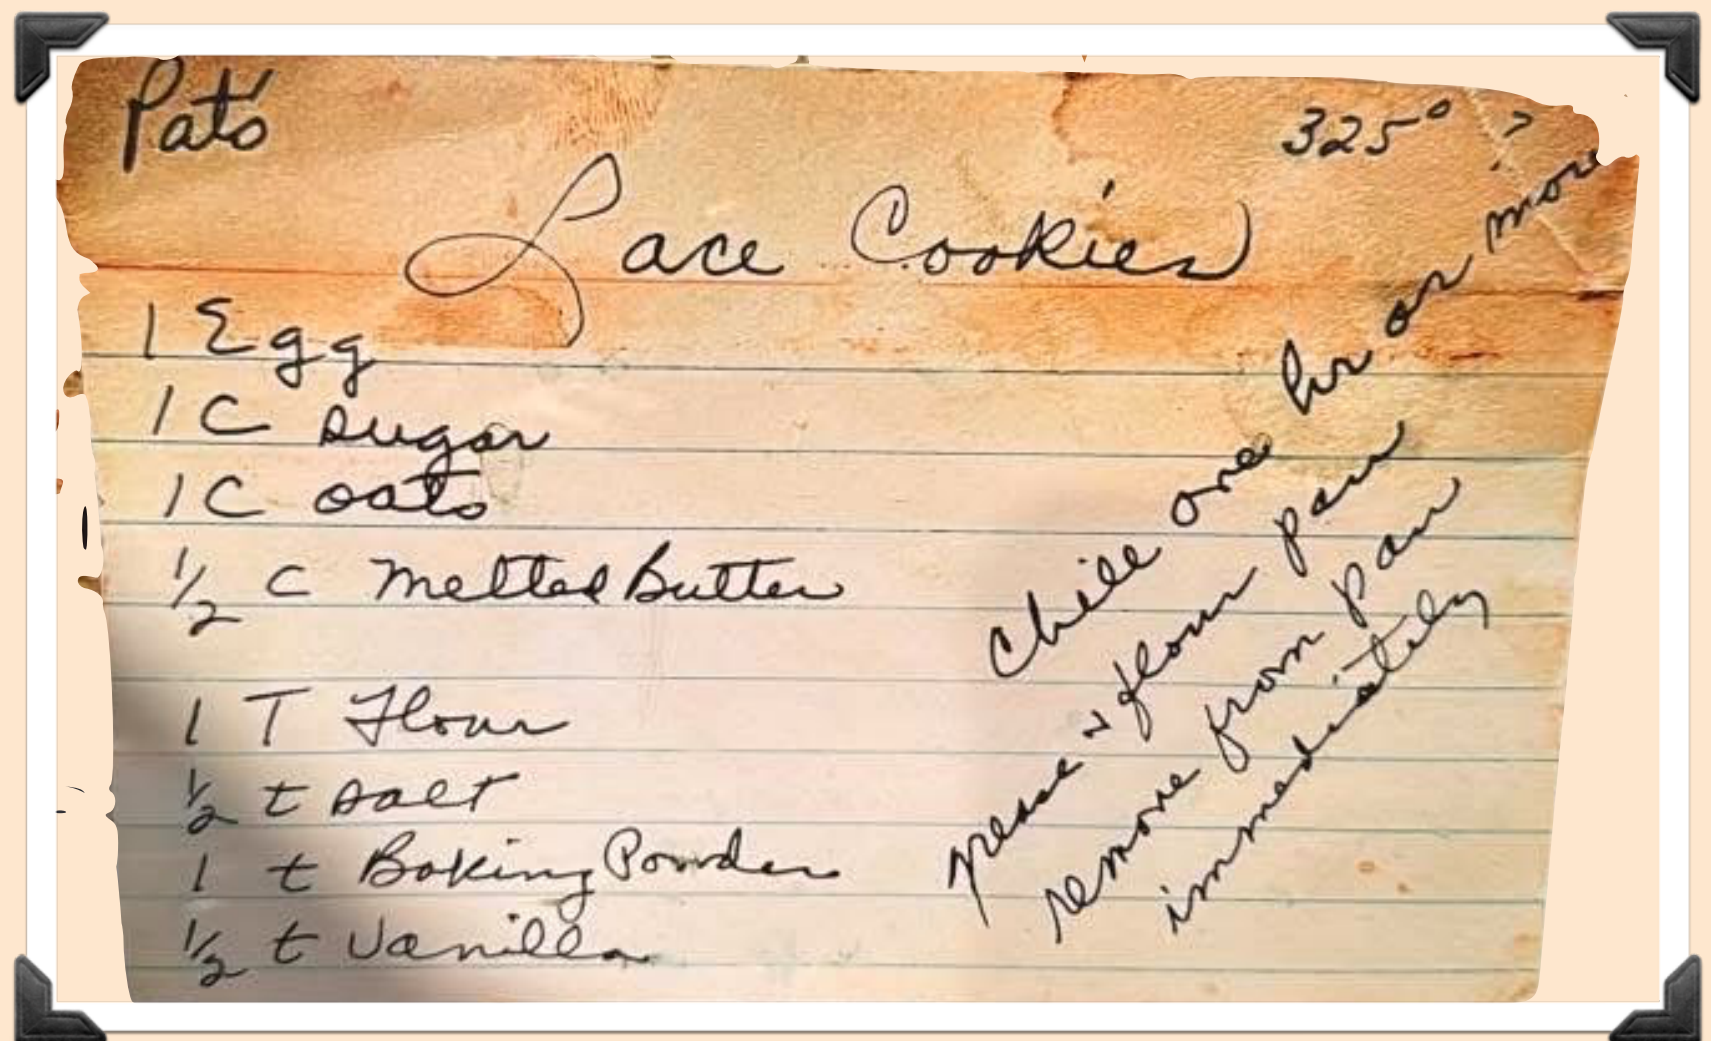 Pat's
325° ?
Lace Cookies
1 Egg
1 C sugar
1 C oats
1/2 C Melted Butter
1 T Flour
1/2 t salt
1 t Baking Powder
1/2 t Vanilla
Chill one hr or more
grease & flour pan
remove from pan
immediately